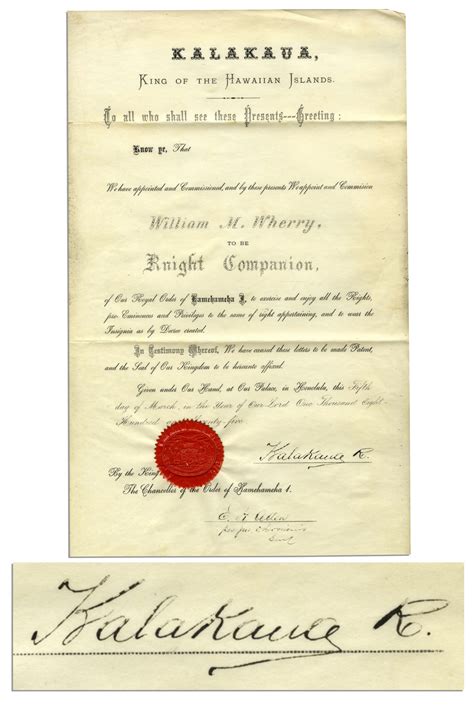 KALAKAUA,
KING OF THE HAWAIIAN ISLANDS.
To all who shall see these Presents---Greeting:
Know ye, That
We have appointed and Commissioned, and by these presents We appoint and Commision
William M. Wherry,
TO BE
Knight Companion,
of Our Royal Order of Kamehameha I., to exercise and enjoy all the Rights,
pre-Eminences and Privileges to the same of right appertaining, and to wear the
Insignia as by Decree created.
In Testimony Whereof, We have caused these letters to be made Patent,
and the Seal of Our Kingdom to be hereunto affixed.
Given under Our Hand, at Our Palace, in Honolulu, this Fifth
day of March, in the Year of Our Lord One Thousand Eight
Hundred and Seventy five
Kalakaua R.
By the King
The Chancellor of the Order of Kamehameha I.
Kalakaua R.